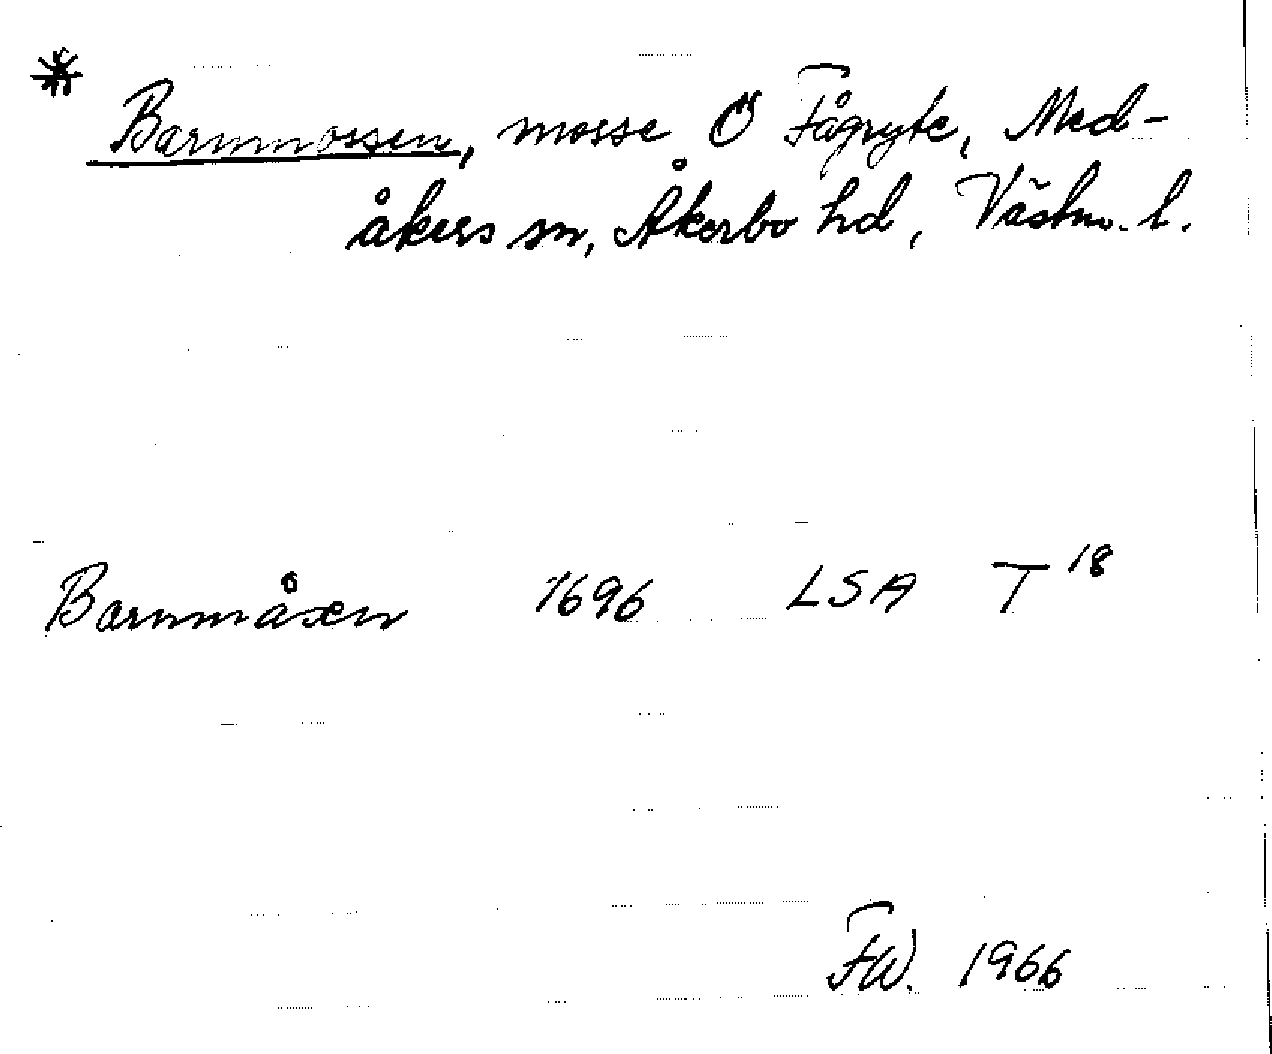 * Barnmossen, mosse Ö Fågryte, Med-
åkers sn, Åkerbo hd, Västm. l.
Barnmåxen 1696 LSA T 18
FW. 1966